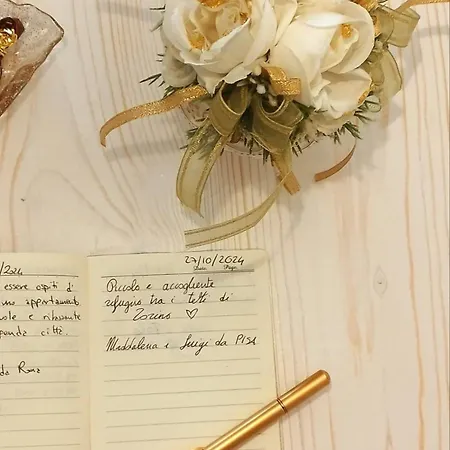 /2024
essere ospiti d'
uno appartamento
vole e rilassante
enda città.
da Roma
27/10/2024
Date: Page:
Piccolo e accogliente
refugio tra i tetti di
Torino ♡
Maddalena e Luigi da PISA